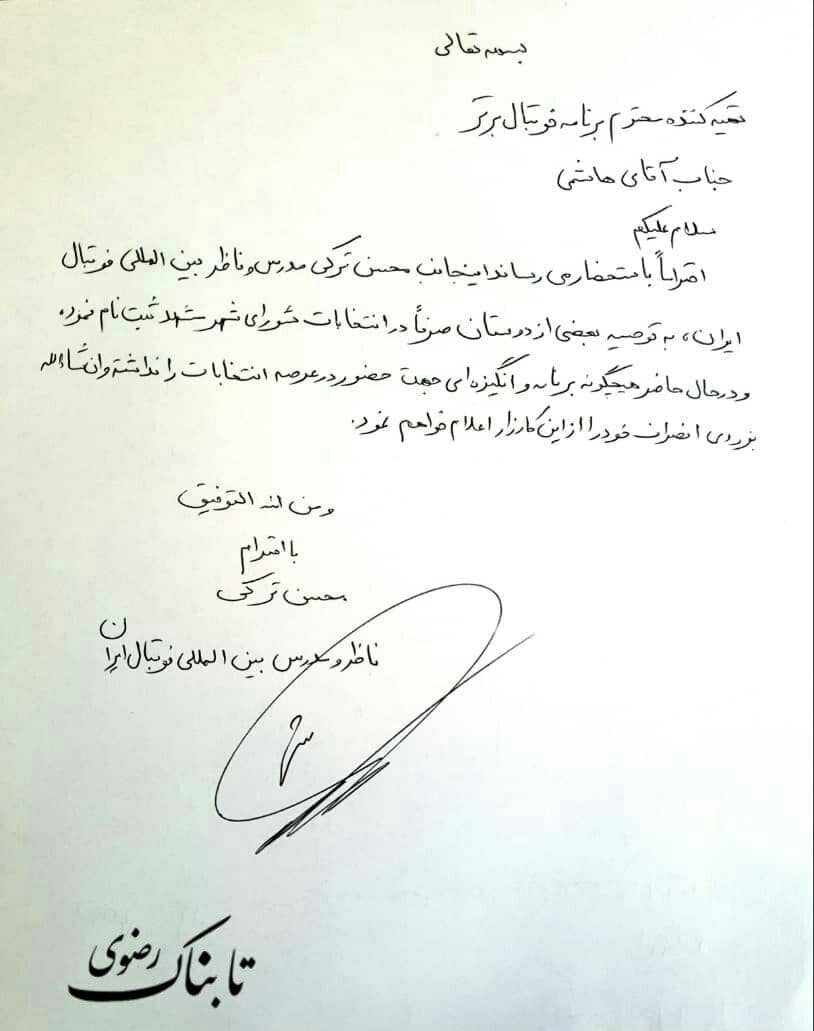 بسمه تعالی
تهیه کننده محترم برنامه فوتبال برتر
جناب آقای هاشمی
سلام علیکم
احتراماً باستحضار می رساند اینجانب محسن ترکی مدرس و ناظر بین المللی فوتبال
ایران، به توصیه بعضی از دوستان صرفاً در انتخابات شورای شهر مشهد ثبت نام نموده
و در حال حاضر هیچگونه برنامه و انگیزه ای جهت حضور در عرصه انتخابات را نداشته و انشاءالله
بزودی انصراف خود را از این کارزار اعلام خواهم نمود.
و من الله التوفیق
با احترام
محسن ترکی
ناظر و مدرس بین المللی فوتبال ایران
تابناک رضوی